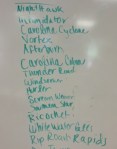 Nighthawk
Intimidator
Carolina Cyclone
Vortex
Afterburn
Carolina Cobra
Thunder Road
Windseeker
Hurler
Ricochet
Whitewater Falls
Rip Roarin Rapids